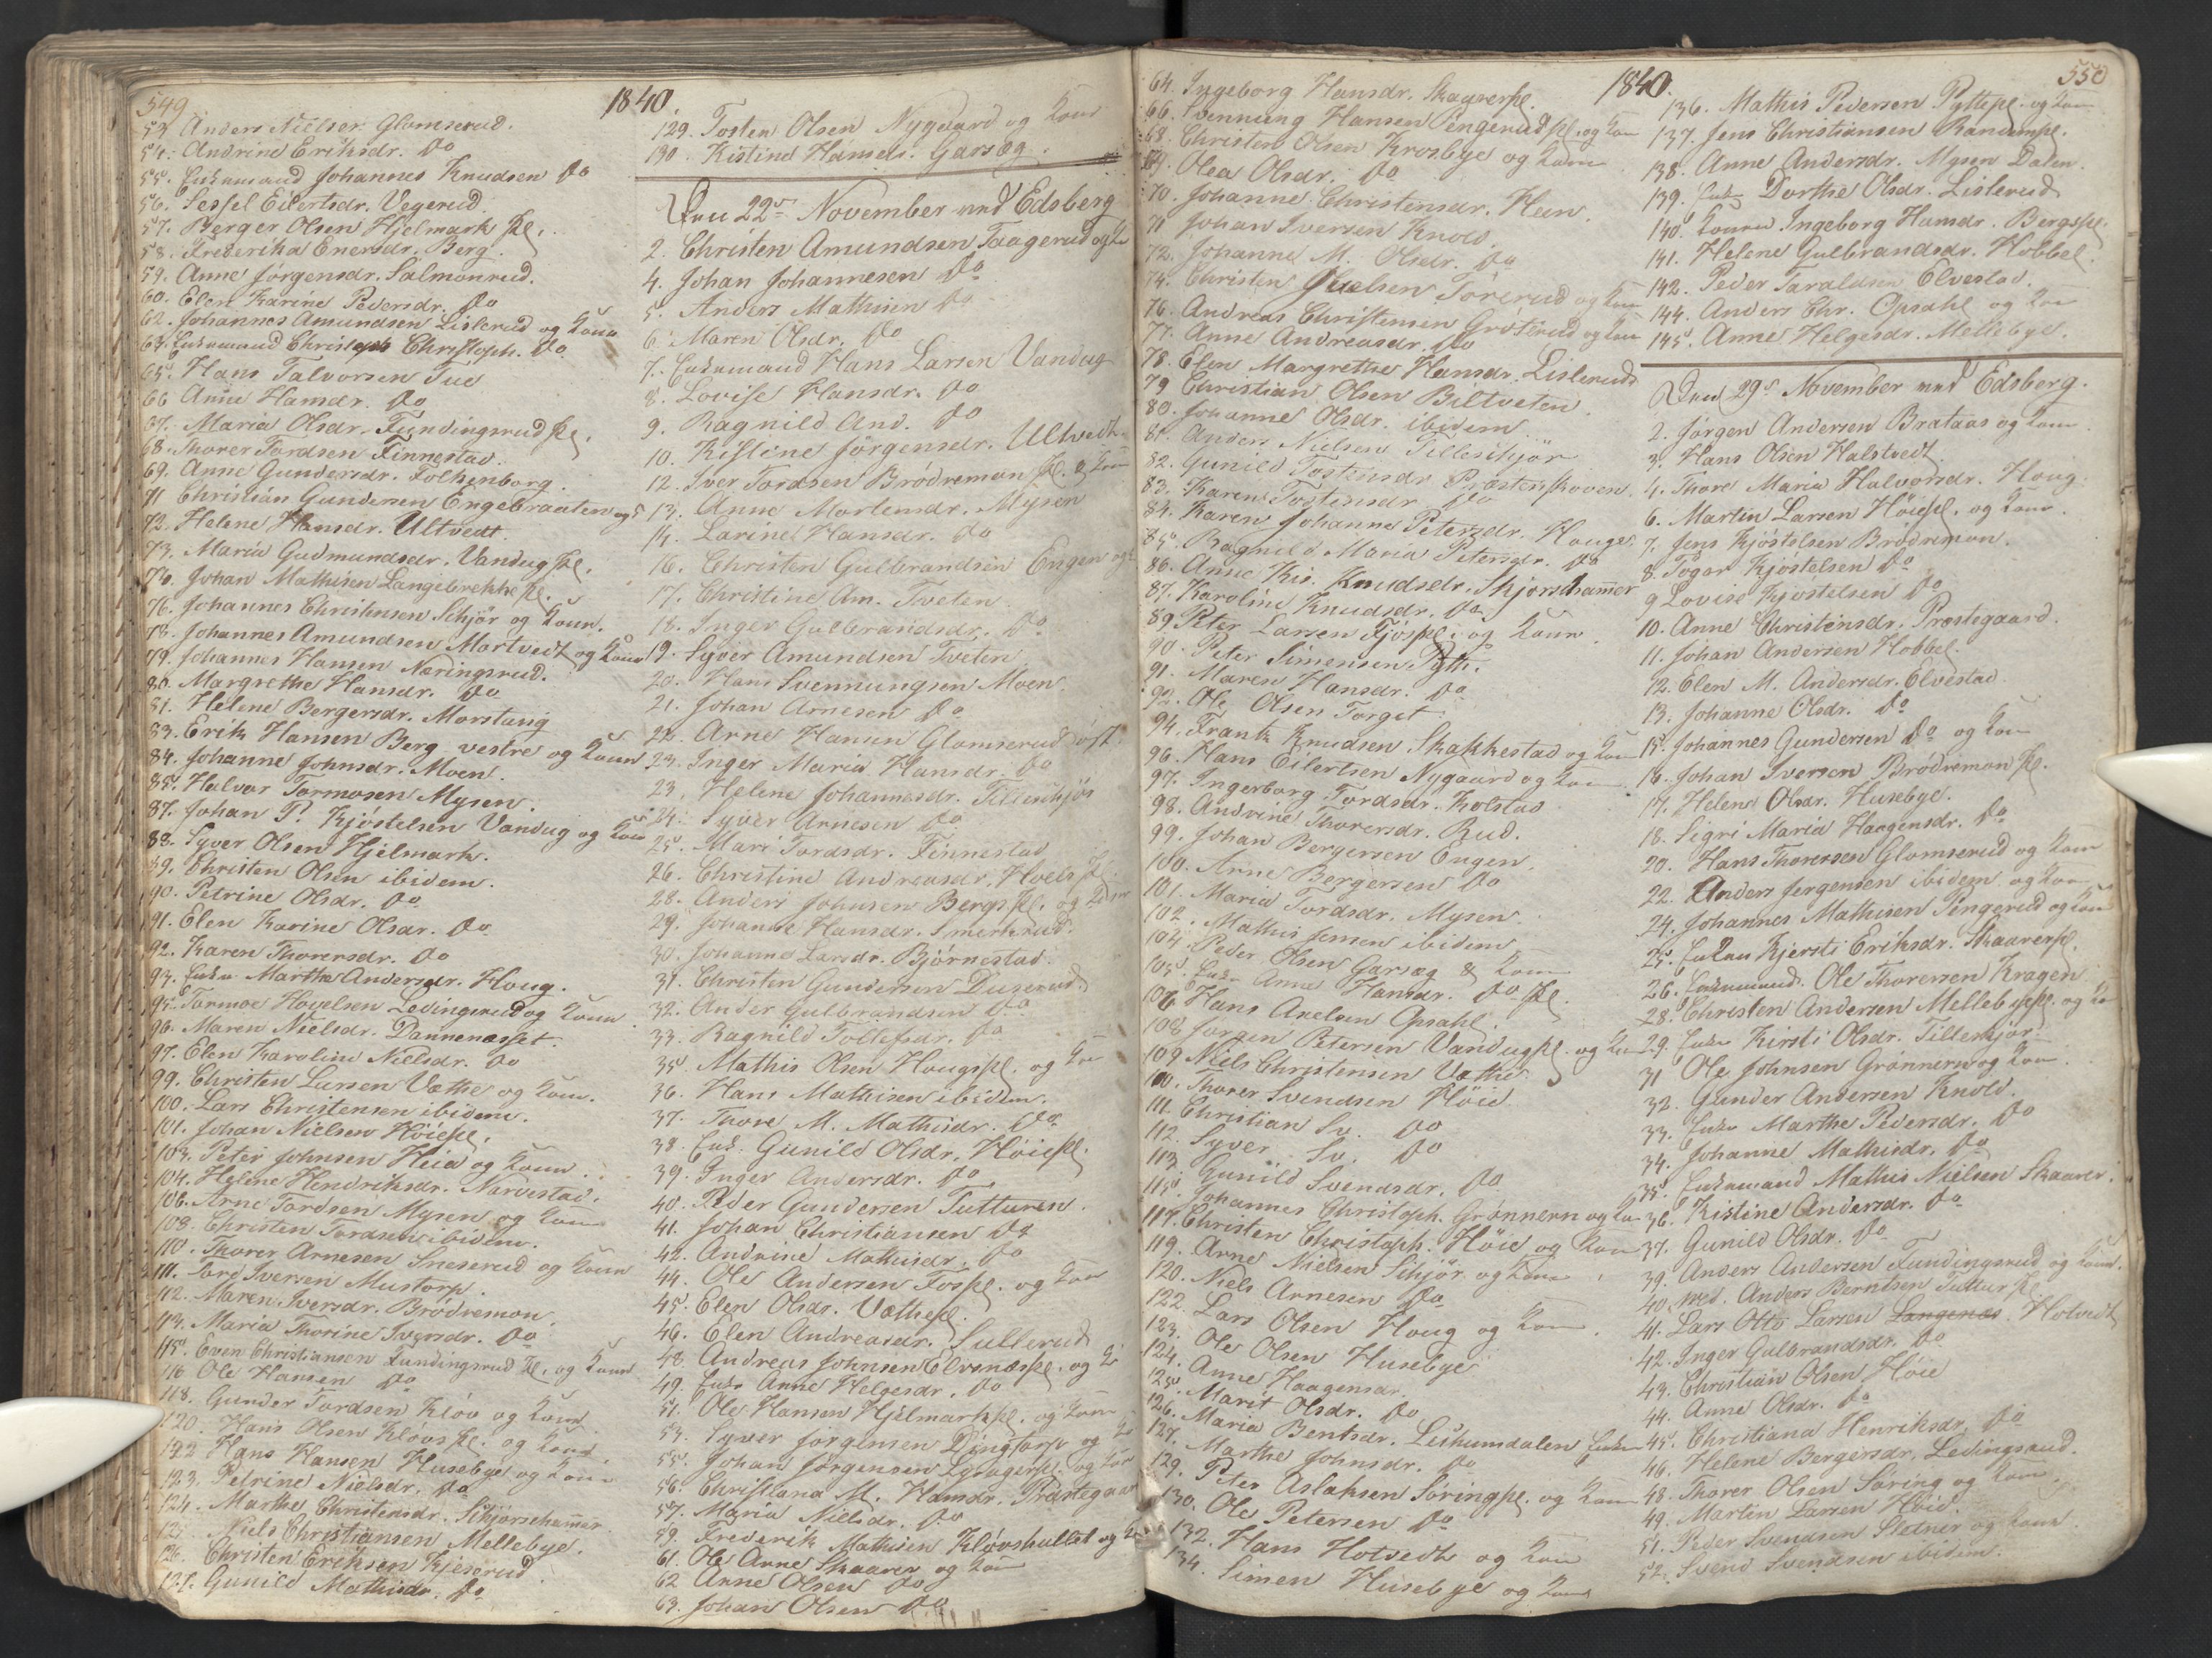 549
1840.
53. Anders Nielsen Glomserud.
54. Andrine Eriksdr. Do
55. Enkemand Johannes Knudsen Do
56. Sessel Eilertsdr. Vegerud.
57. Berger Olsen Hjelmark Pl.
58. Frederikka Enersdr. Berg.
59. Anne Jørgensdr. Salmonrud.
60. Elen Karine Pedersdr. Do
62. Johannes Amundsen Lislerud og Kone
63. Enkemand Christoph Christoph. Do
65. Hans Talvorsen Tue
66 Anne Hansdr. Do
67. Maria Olsdr. Fundingsrud Pl.
68. Thorer Tordsen Finnestad.
69. Anne Gundersdr. Folkenborg.
71 Christian Gundersen Engebraaten og
72. Helene Hansdr. Ultvedt.
73. Maria Gudmundsdr. Vandug Pl.
74. Johan Mathisen Langebrekke Pl.
76. Johannes Christensen Skjør og Kone.
78. Johannes Amundsen Mortvedt og Kone
79. Johannes Hansen Næringsrud.
80. Margrethe Hansdr. Do
81. Helene Bergersdr. Morstang
83. Erik Hansen Berg vestre og Kone
84. Johanne Johnsdr. Moen.
85. Halvor Tormosen Mysen.
87. Johan P. Kjøstelsen Vandug og Kone
88. Syver Olsen Hjelmark.
89. Christen Olsen ibidem.
90. Petrine Olsdr. Do
91. Elen Karine Olsdr. Do
92. Karen Thorersdr. Do
93. Enke Marthe Andersdr. Houg.
95. Tormoe Hovelsen Ledingsrud og Kone
96. Maren Nielsdr. Dannenæsset.
97. Elen Karoline Nielsdr. Do
99. Christen Larsen Væthe og Kone.
100. Lars Christensen ibidem.
101. Johan Nielsen Høiepl.
103. Peter Johnsen Heia og Kone.
104. Helene Hendriksdr. Narvestad.
106. Arne Tordsen Mysen og Kone
108. Christen Tordsen ibidem.
110. Thorer Arnesen Sneserud og Kone
111. Tord Iversen Mustorp.
112. Maren Iversdr. Brødremon.
113. Maria Thorine Iversdr. Do
115. Even Christiansen Fundingsrud Pl. og Kone
116 Ole Hansen Do
118. Gunder Tordsen Kløv og Kone
120. Hans Olsen Kløvs Pl. og Kone
122 Hans Hansen Husebye og Kone
123. Petrine Nielsdr. Do
124. Marthe Christensdr. Skjørshammer
125 Niels Christiansen Mellebye.
126. Christen Eriksen Kjeserud.
127. Gunild Mathisdr. Do
129. Tosten Olsen Nygaard og Kone
130. Kistine Hansdr. Garseg.
Den 22de November ved Edsberg
2. Christen Amundsen Taagerud og Ko
4. Johan Johannesen Do
5. Anders Mathisen Do
6. Maren Olsdr. Do
7. Enkemand Hans Larsen Vandug
8. Lovise Hansdr. Do
9. Ragnild And. Do
10. Kistine Jørgensdr. Ultvedt.
12. Iver Tordsen Brødremon Pl. & Kone
13. Anne Mortensdr. Mysen
14. Larine Hansdr. Do
16. Christen Gulbrandsen Engen og
17. Christine Am. Tveten.
18. Inger Gulbrandsdr. Do
19. Syver Amundsen Tveten
20. Hans Svennungsen Moen
21. Johan Arnesen Do
22. Arne Hansen Glomserud øst
23. Inger Maria Hansdr. Do
23. Helene Johannesdr. Tilleskjør
24. Syver Arnesen Do
25. Mari Tordsdr. Finnestad
26. Christine Andreasdr. Hoels Pl.
28. Anders Johnsen Bergs Pl. og Kone
29. Johanne Hansdr. Smerkrud.
30. Johanne Larsdr. Bjørnestad.
31. Christen Gundersen Duserud
32. Ander Gulbrandsen Do
33. Ragnild Tollefsdr. Do
35. Mathis Olsen Hougspl. og Kone
36. Hans Mathisen ibidem.
37. Thore M. Mathisdr. Do
38. Enk. Gunild Olsdr. Høiepl.
39. Inger Andersdr. Do
40. Peder Gundersen Tutturen.
41. Johan Christiansen Do
42. Andrine Mathisdr. Do
44. Ole Andersen Fospl. og Kone
45. Elen Olsdr. Væthepl.
46. Elen Andreasdr. Sullerud
48. Andreas Johnsen Elvenæspl. og K
49. Enke Anne Helgesdr. Do
51. Ole Hansen Hjelmarkpl. og Kone
53. Syver Jørgensen Dingtorp og K
55. Johan Jørgensen Lysagerpl. og Kon
56. Christiana M. Hansdr. Præstegaard
57. Maria Nielsdr. Do
59. Frederik Mathisen Kløvshullet og K
61. Ole Arne Skaarer og Kone
62 Anne Olsen Do
63. Johan Olsen Do
1840.
550
64. Ingeborg Hansdr. Skaarerpl.
66. Svennung Hansen Pengerudpl. og Kone
68. Christen Olsen Krosbye og Kone
69. Olea Olsdr. Do
70. Johanne Christensdr. Heen.
71 Johan Iversen Knold.
72. Johanne M. Olsdr. Do
74. Christen Juelsen Torerud og Kone
76. Andreas Christensen Grøterud og Kone
77. Anne Andreasdr. Do
78. Elen Margrethe Hansdr. Lislerud
79 Christian Olsen Biltveten.
80. Johanne Olsdr. ibidem
81. Anders Nielsen Tilleskjør
82. Gunild Tostensdr. Præsteskoven.
83. Karen Tostensdr. Do
84. Karen Johanne Petersdr. Houge.
85. Ragnild Maria Petersdr. Do
86. Anne Kis. Knudsdr. Skjørshammer
87. Karoline Knudsdr. Do
89 Peter Larsen Fjøspl. og Kone
90. Peter Simensen Pyth.
91. Maren Hansdr. Do
92. Ole Olsen Torget
94. Frank Knudsen Skakkestad og Kone
96. Hans Eilertsen Nygaard og Kone
97. Ingerborg Tordsdr. Kolstad
98. Andrine Thorersdr. Rud.
99. Johan Bergersen Engen.
100. Arne Bergersen Do
101. Maria Tordsdr. Mysen
102. Mathis Jensen ibidem
104. Peder Olsen Garseg & Kone
105. Enke Anne Hansdr. Do Pl.
106 Hans Axelsen Opsahl.
108 Jørgen Petersen Vandugpl. og Kone
109 Niels Christensen Væthe
110. Thorer Svendsen Høie
111. Christian Sv. Do
112. Syver Sv. Do
113. Gunild Svendsdr. Do
115. Johannes Christoph. Grønnern og Ko
117. Christen Christoph. Høie og Kone
119. Arne Nielsen Skjør og Kone
120. Niels Arnesen Do
122. Lars Olsen Houg og Kone
123. Ole Olsen Husebye
124. Anne Haagensdr.
125. Marit Olsdr. Do
126. Maria Bentsdr. Leikumdalen Enke
127. Marthe Johnsdr. Do
129. Peter Aslaksen Søringpl. og Kone
130. Ole Petersen Do
132. Hans Hotvedt og Kone
134. Simen Husebye og Kone
136. Mathis Pedersen Pyttepl. og Kone
137. Jens Christiansen Randempl.
138. Anne Andersdr. Mysen Dalen.
139. Enke Dorthe Olsdr. Lislerud
140. Konen Ingeborg Hansdr. Bergspl.
141. Helene Gulbrandsdr. Hobbel.
142. Peder Taraldsen Elvestad.
144. Anders Chr. Opsahl og Kone
145. Anne Helgesdr. Mellebye.
Den 29de November ved Edsberg.
2. Jørgen Andersen Brataas og Kone
3. Hans Olsen Halstvedt
4. Thore Maria Halvorsdr. Houg.
6. Martin Larsen Høiepl. og Kone.
7. Jens Kjøstelsen Brødremon.
8. Togor Kjøstelsen Do
9 Lovise Kjøstelsen Do
10. Anne Christensdr. Præstegaard.
11. Johan Andersen Hobbel.
12. Elen M. Andersdr. Elvestad
13. Johanne Olsdr. Do
15. Johannes Gundersen Do og Kone
16. Johan Iversen Brødremon Pl.
17. Helene Olsdr. Husebye.
18. Sigri Maria Haagensdr. Do
20. Hans Thoresen Glomserud og Kone
22. Anders Jørgensen ibidem og Kone
24. Johannes Mathisen Pengerud og Kone
25. Enken Kjersti Eriksdr. Skaarerpl.
26. Enkemand. Ole Thorersen Kragen
28. Christen Andersen Mellebyepl. og Ko
29. Enke Kirsti Olsdr. Tilleskjør
31 Ole Johnsen Grønnern og Kone
32. Gunder Andersen Knold.
33. Enke Marthe Pedersdr. Do
34. Johanne Mathisdr. Do
35. Enkemand Mathis Nielsen Skaarer.
36. Kistine Andersdr. Do
37. Gunild Olsdr. Do
39. Anders Andersen Fundingsrud og Kone.
40. Anders Berntsen Tuttur Pl.
41. Lars Otto Larsen Langenæs Hotvedt
42. Inger Gulbrandsdr. Do
43. Christian Olsen Høie
44. Anne Olsdr. Do
45. Christiana Henriksdr. Do
46. Helene Bergersdr. Ledingsrud.
48. Thorer Olsen Søring og Kone
49. Martin Larsen Høie.
51. Peder Svendsen Sletner og Kone
52. Svend Svendsen ibidem.